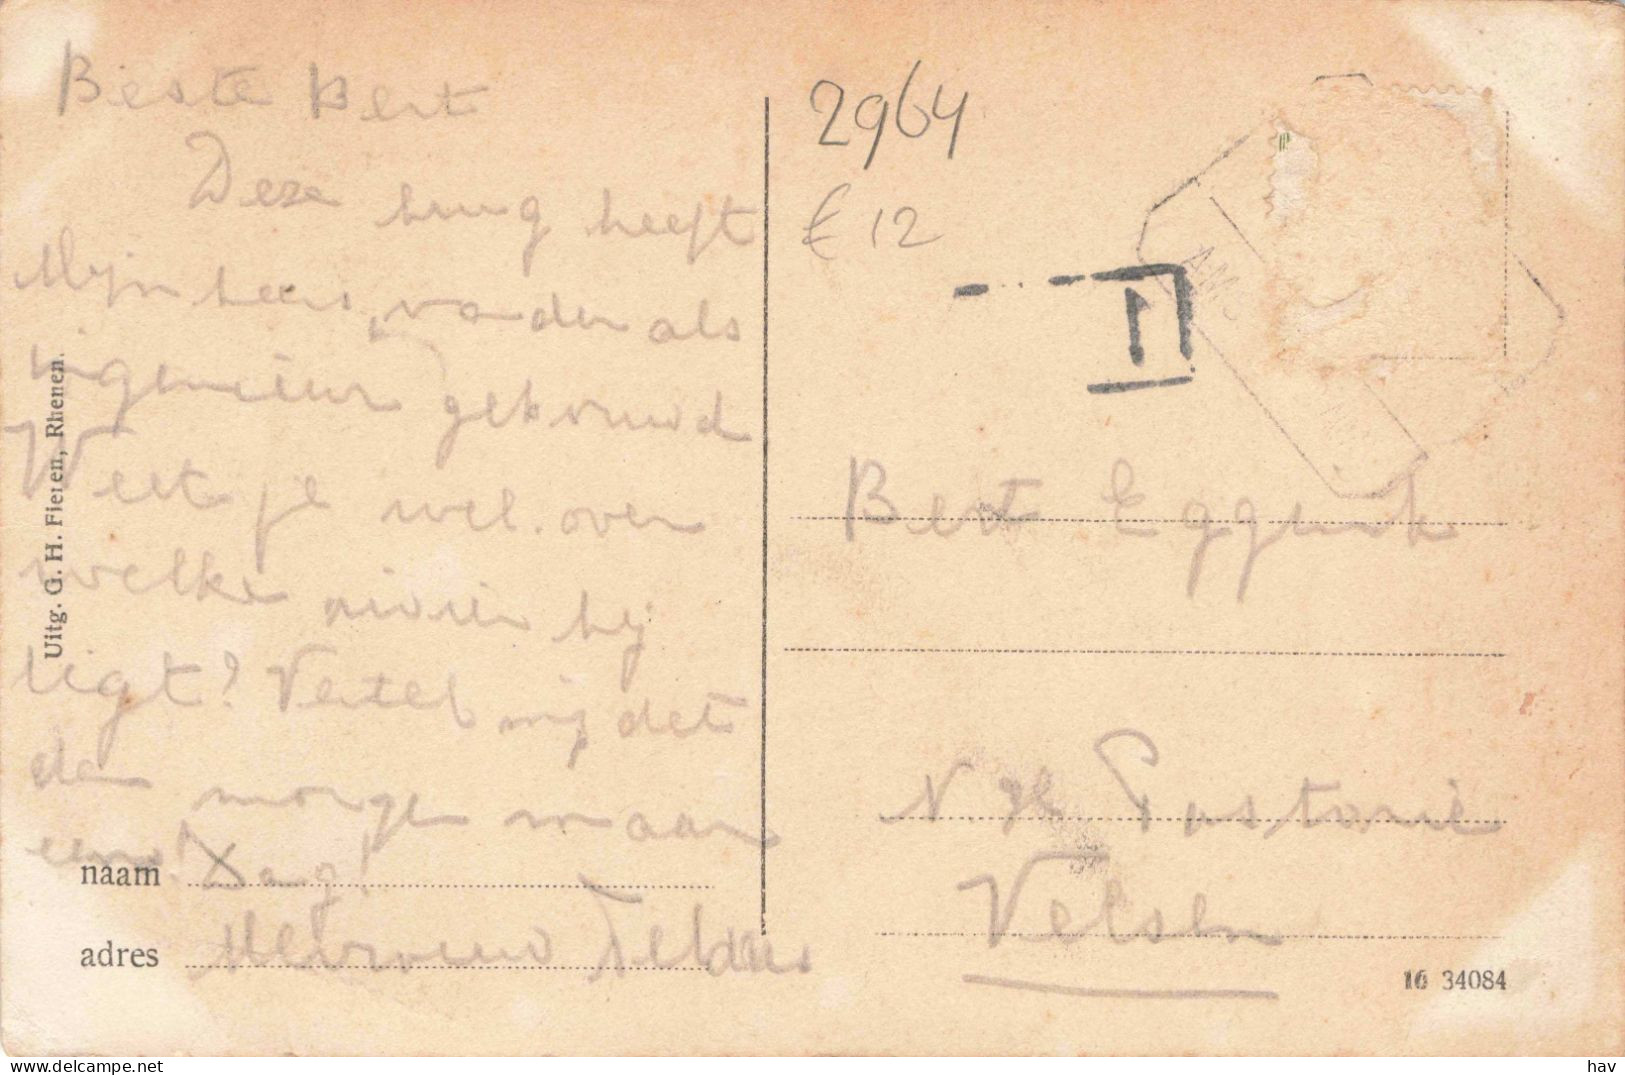 Beste Bert
Deze brug heeft
Mijnheer vader als
ingenieur gebouwd
Weet je wel over
welke rivier hij
ligt? Vertel mij det
dan morgen maar
eens! Dag!
Mevrouw
naam
adres
Uitg. G. H. Fieren, Rhenen.
2964
€ 12
1
Bert
N H Pastorie
Velsen
16 34084
hav